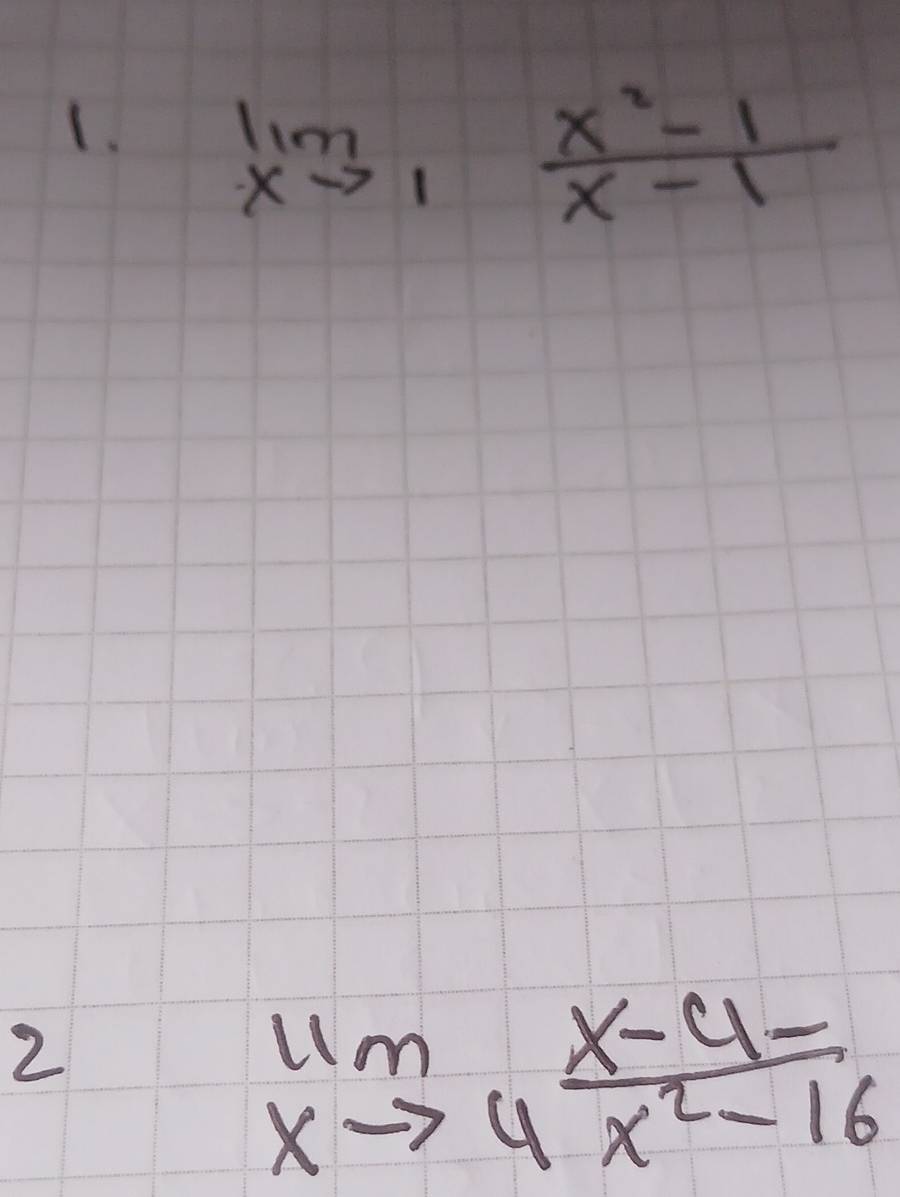 1. lim x² - 1
x → 1 x - 1
2 lim x - 4 -
x → 4 x² - 16